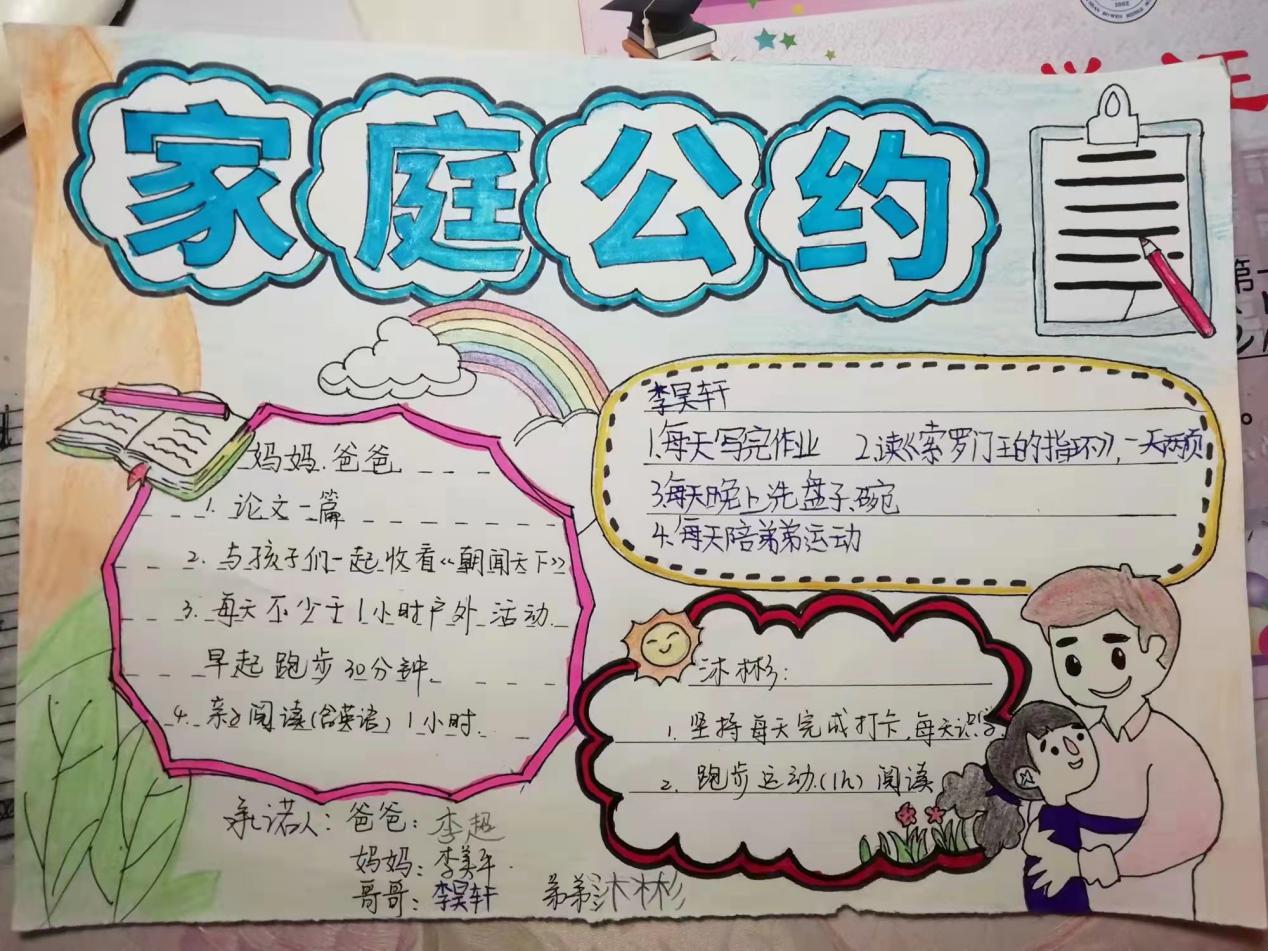 家庭公约
妈妈.爸爸
1. 论文一篇
2. 与孩子们一起收看《朝闻天下》
3. 每天不少于1小时户外活动.
早起跑步30分钟.
4. 亲子阅读(含英语)1小时.
李昊轩
1.每天写完作业 2.读《索罗门王的指环》,一天两页
3.每天晚上洗盘子、碗
4.每天陪弟弟运动
沐彬:
1. 坚持每天完成打卡,每天识字
2. 跑步运动.(1h) 阅读
承诺人: 爸爸: 李超
妈妈: 李美平.
哥哥: 李昊轩 弟弟: 沐彬
第一